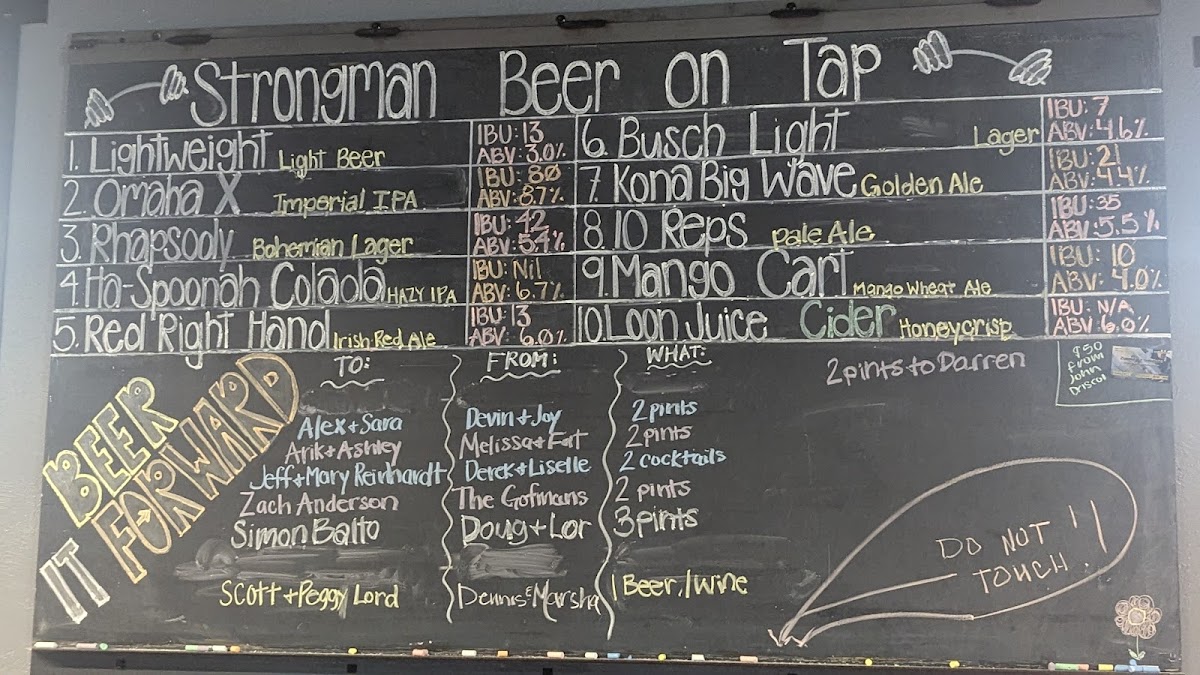 Strongman Beer on Tap
1. Lightweight Light Beer IBU: 13 ABV: 3.0%
2. Omaha X Imperial IPA IBU: 80 ABV: 8.7%
3. Rhapsody Bohemian Lager IBU: 42 ABV: 5.4%
4. Ha-Spoonah Colada HAZY IPA IBU: Nil ABV: 6.7%
5. Red Right Hand Irish Red Ale IBU: 13 ABV: 6.0%
6. Busch Light Lager IBU: 7 ABV: 4.6%
7. Kona Big Wave Golden Ale IBU: 21 ABV: 4.4%
8. 10 Reps Pale Ale IBU: 35 ABV: 5.5%
9. Mango Cart Mango Wheat Ale IBU: 10 ABV: 4.0%
10. Loon Juice Cider Honeycrisp IBU: N/A ABV: 6.0%
BEER
IT
FORWARD
TO: FROM: WHAT:
Alex + Sara Devin + Joy 2 pints
Arik + Ashley Melissa + Fat 2 pints
Jeff + Mary Reinhardt Derek + Liselle 2 cocktails
Zach Anderson The Gofmans 2 pints
Simon Balto Doug + Lor 3 pints
Scott + Peggy Lord Dennis & Marsha 1 Beer, 1 wine
2 pints to Darren
$50
from
John
Driscol
DO NOT
TOUCH!